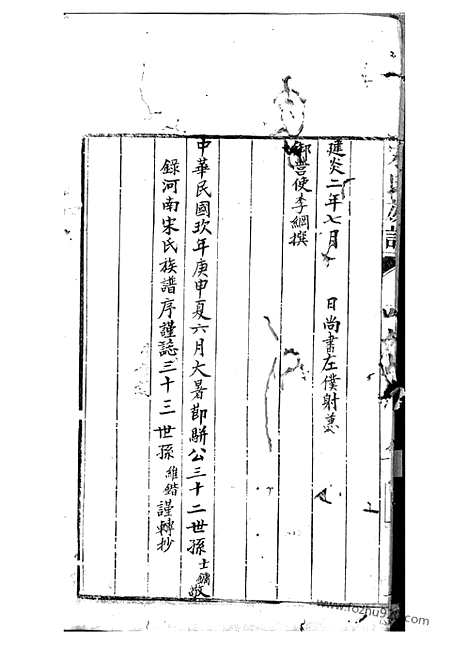 建炎二年七月 日尚書左僕射蒽
御營使李綱撰
中華民國玖年庚申夏六月大暑節駢公三十二世孫士鑛敬
錄河南宋氏族譜序謹誌三十三世孫維鍇謹轉抄
www.fozhu920.com